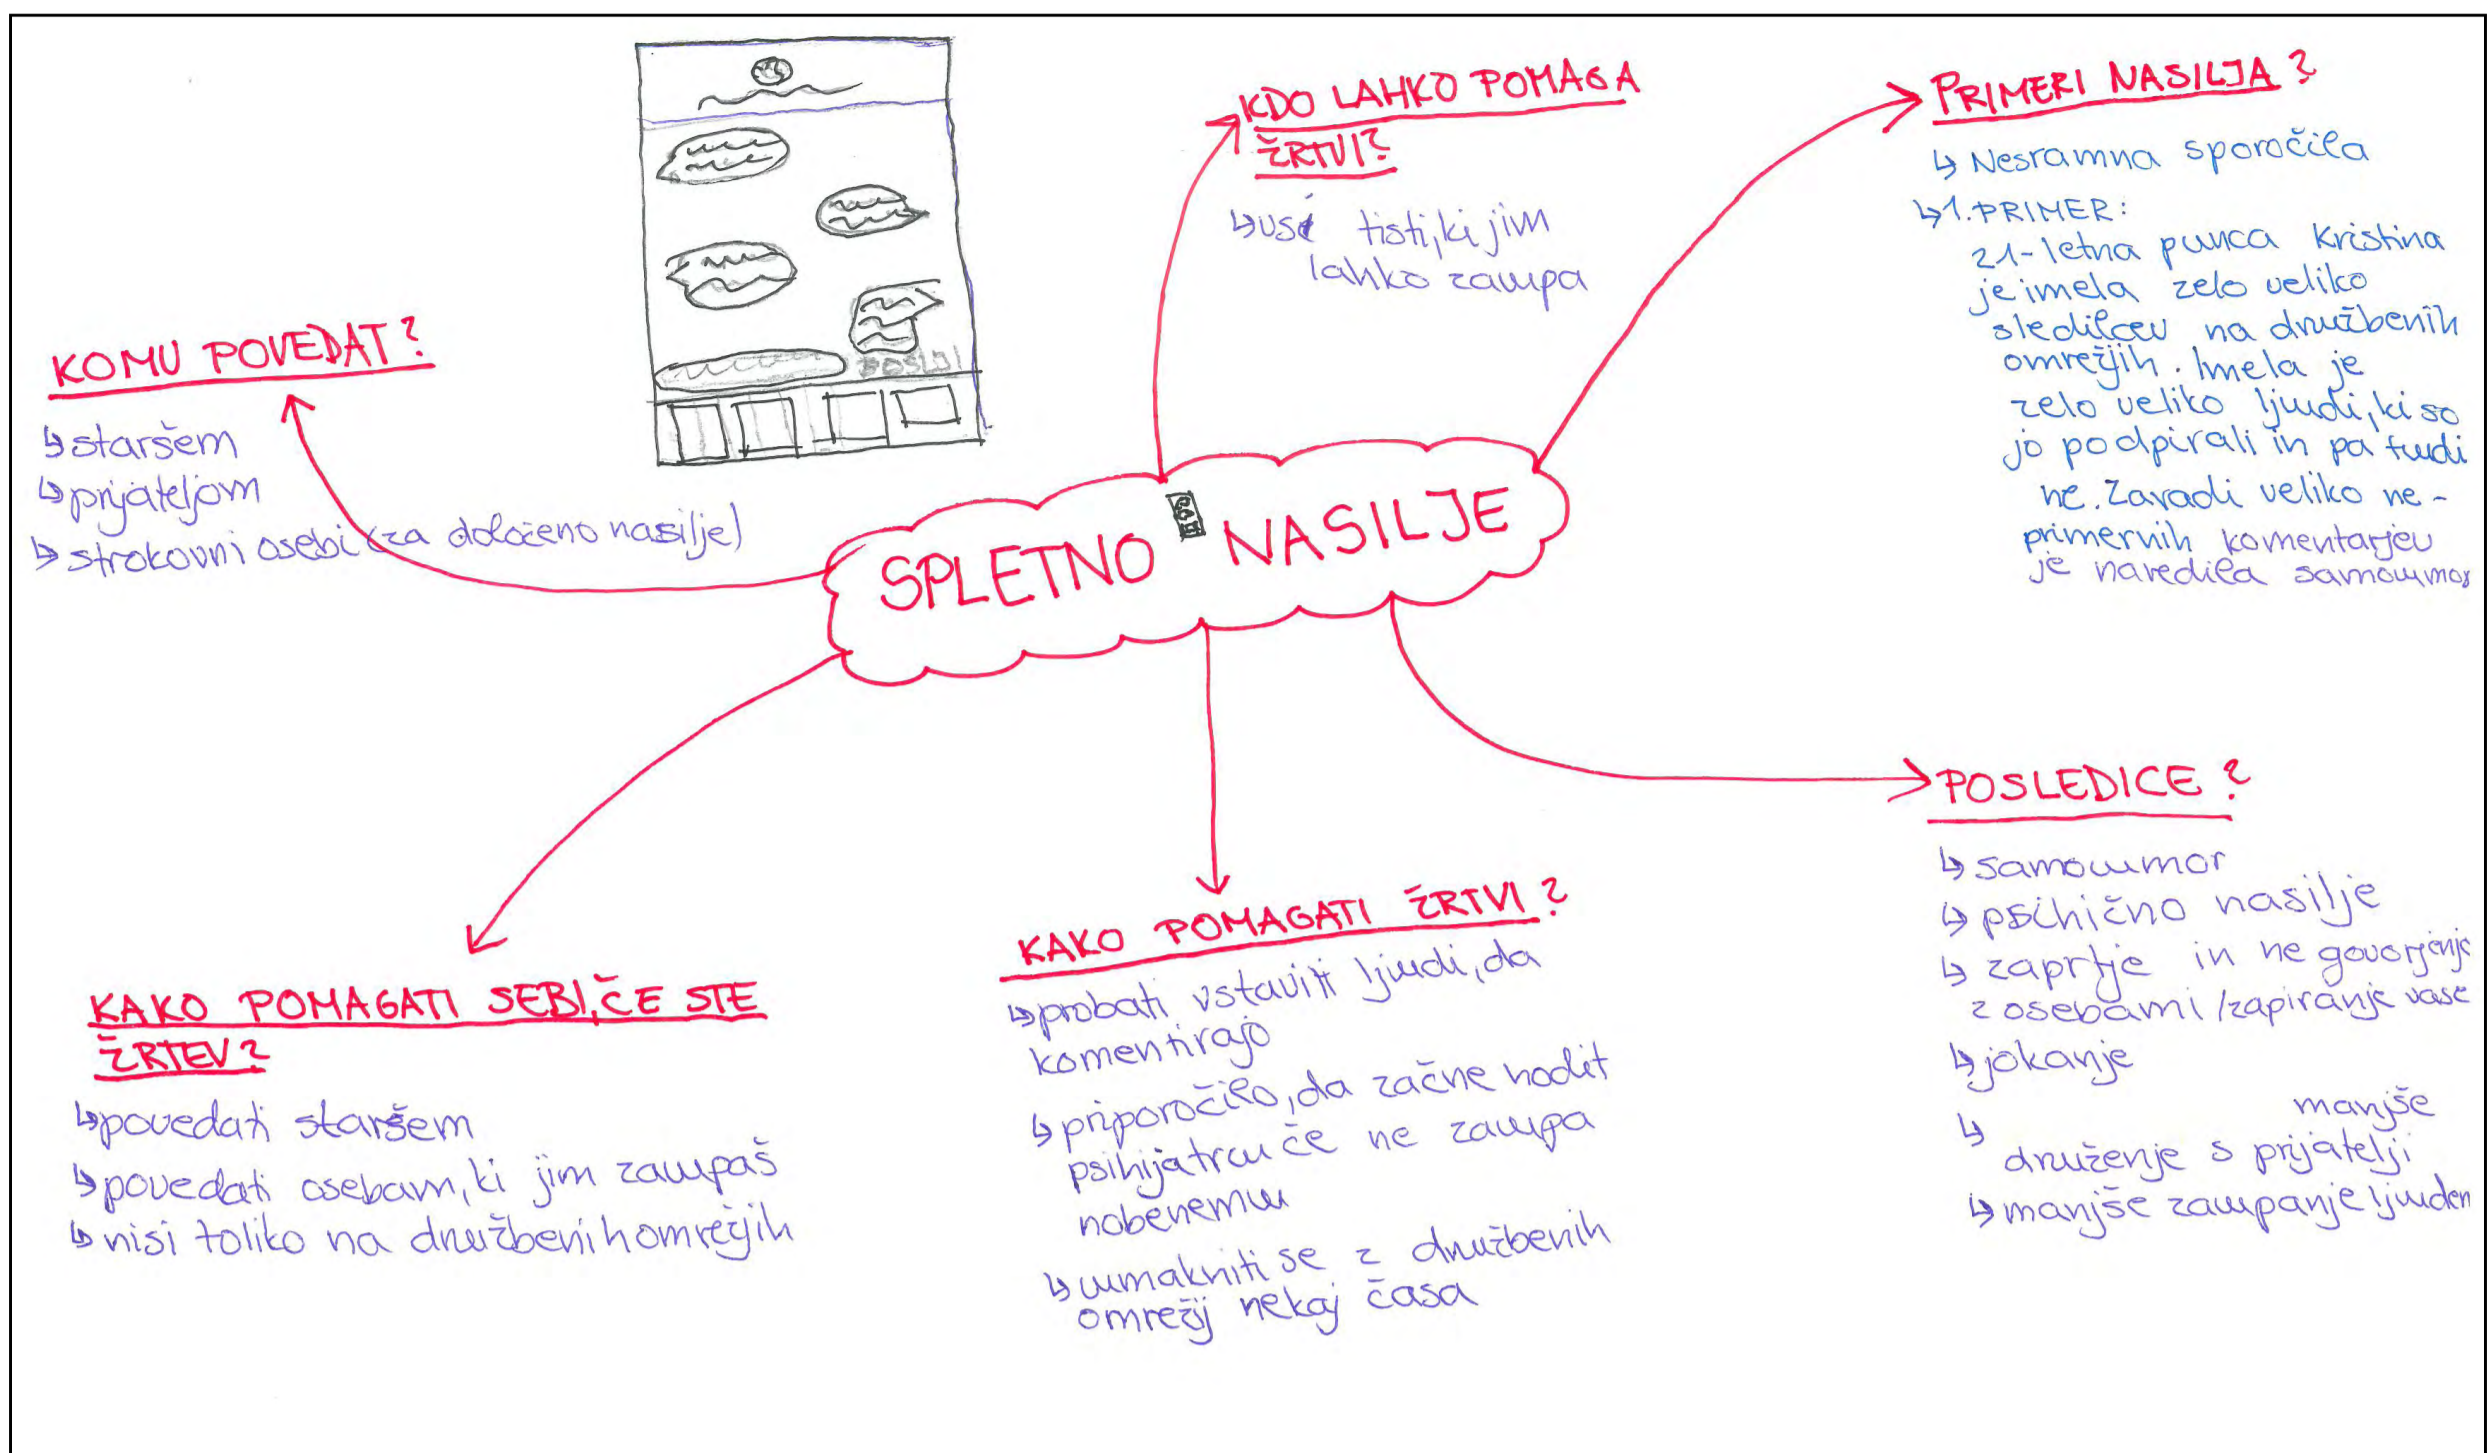 SPLETNO NASILJE
KDO LAHKO POMAGA
ŽRTVI?
↳ vsi tisti, ki jim
lahko zaupa
PRIMERI NASILJA?
↳ Nesramna sporočila
↳ 1. PRIMER:
21-letna punca Kristina
je imela zelo veliko
sledilcev na družbenih
omrežjih. Imela je
zelo veliko ljudi, ki so
jo podpirali in pa tudi
ne. Zaradi veliko ne-
primernih komentarjev
je naredila samoumor
KOMU POVEDAT?
↳ staršem
↳ prijateljom
↳ strokovni osebi (za določeno nasilje)
POŠLJI
POSLEDICE?
↳ samoumor
↳ psihično nasilje
↳ zaprtje in ne govorjenje
z osebami / zapiranje vase
↳ jokanje
↳ manjše
druženje s prijatelji
↳ manjše zaupanje ljudem
KAKO POMAGATI ŽRTVI?
↳ probati vstaviti ljudi, da
komentirajo
↳ priporočilo, da začne hodit
psihijatru če ne zaupa
nobenemu
↳ umakniti se z družbenih
omrežij nekaj časa
KAKO POMAGATI SEBI, ČE STE
ŽRTEV?
↳ povedati staršem
↳ povedati osebam, ki jim zaupaš
↳ nisi toliko na družbenih omrežjih